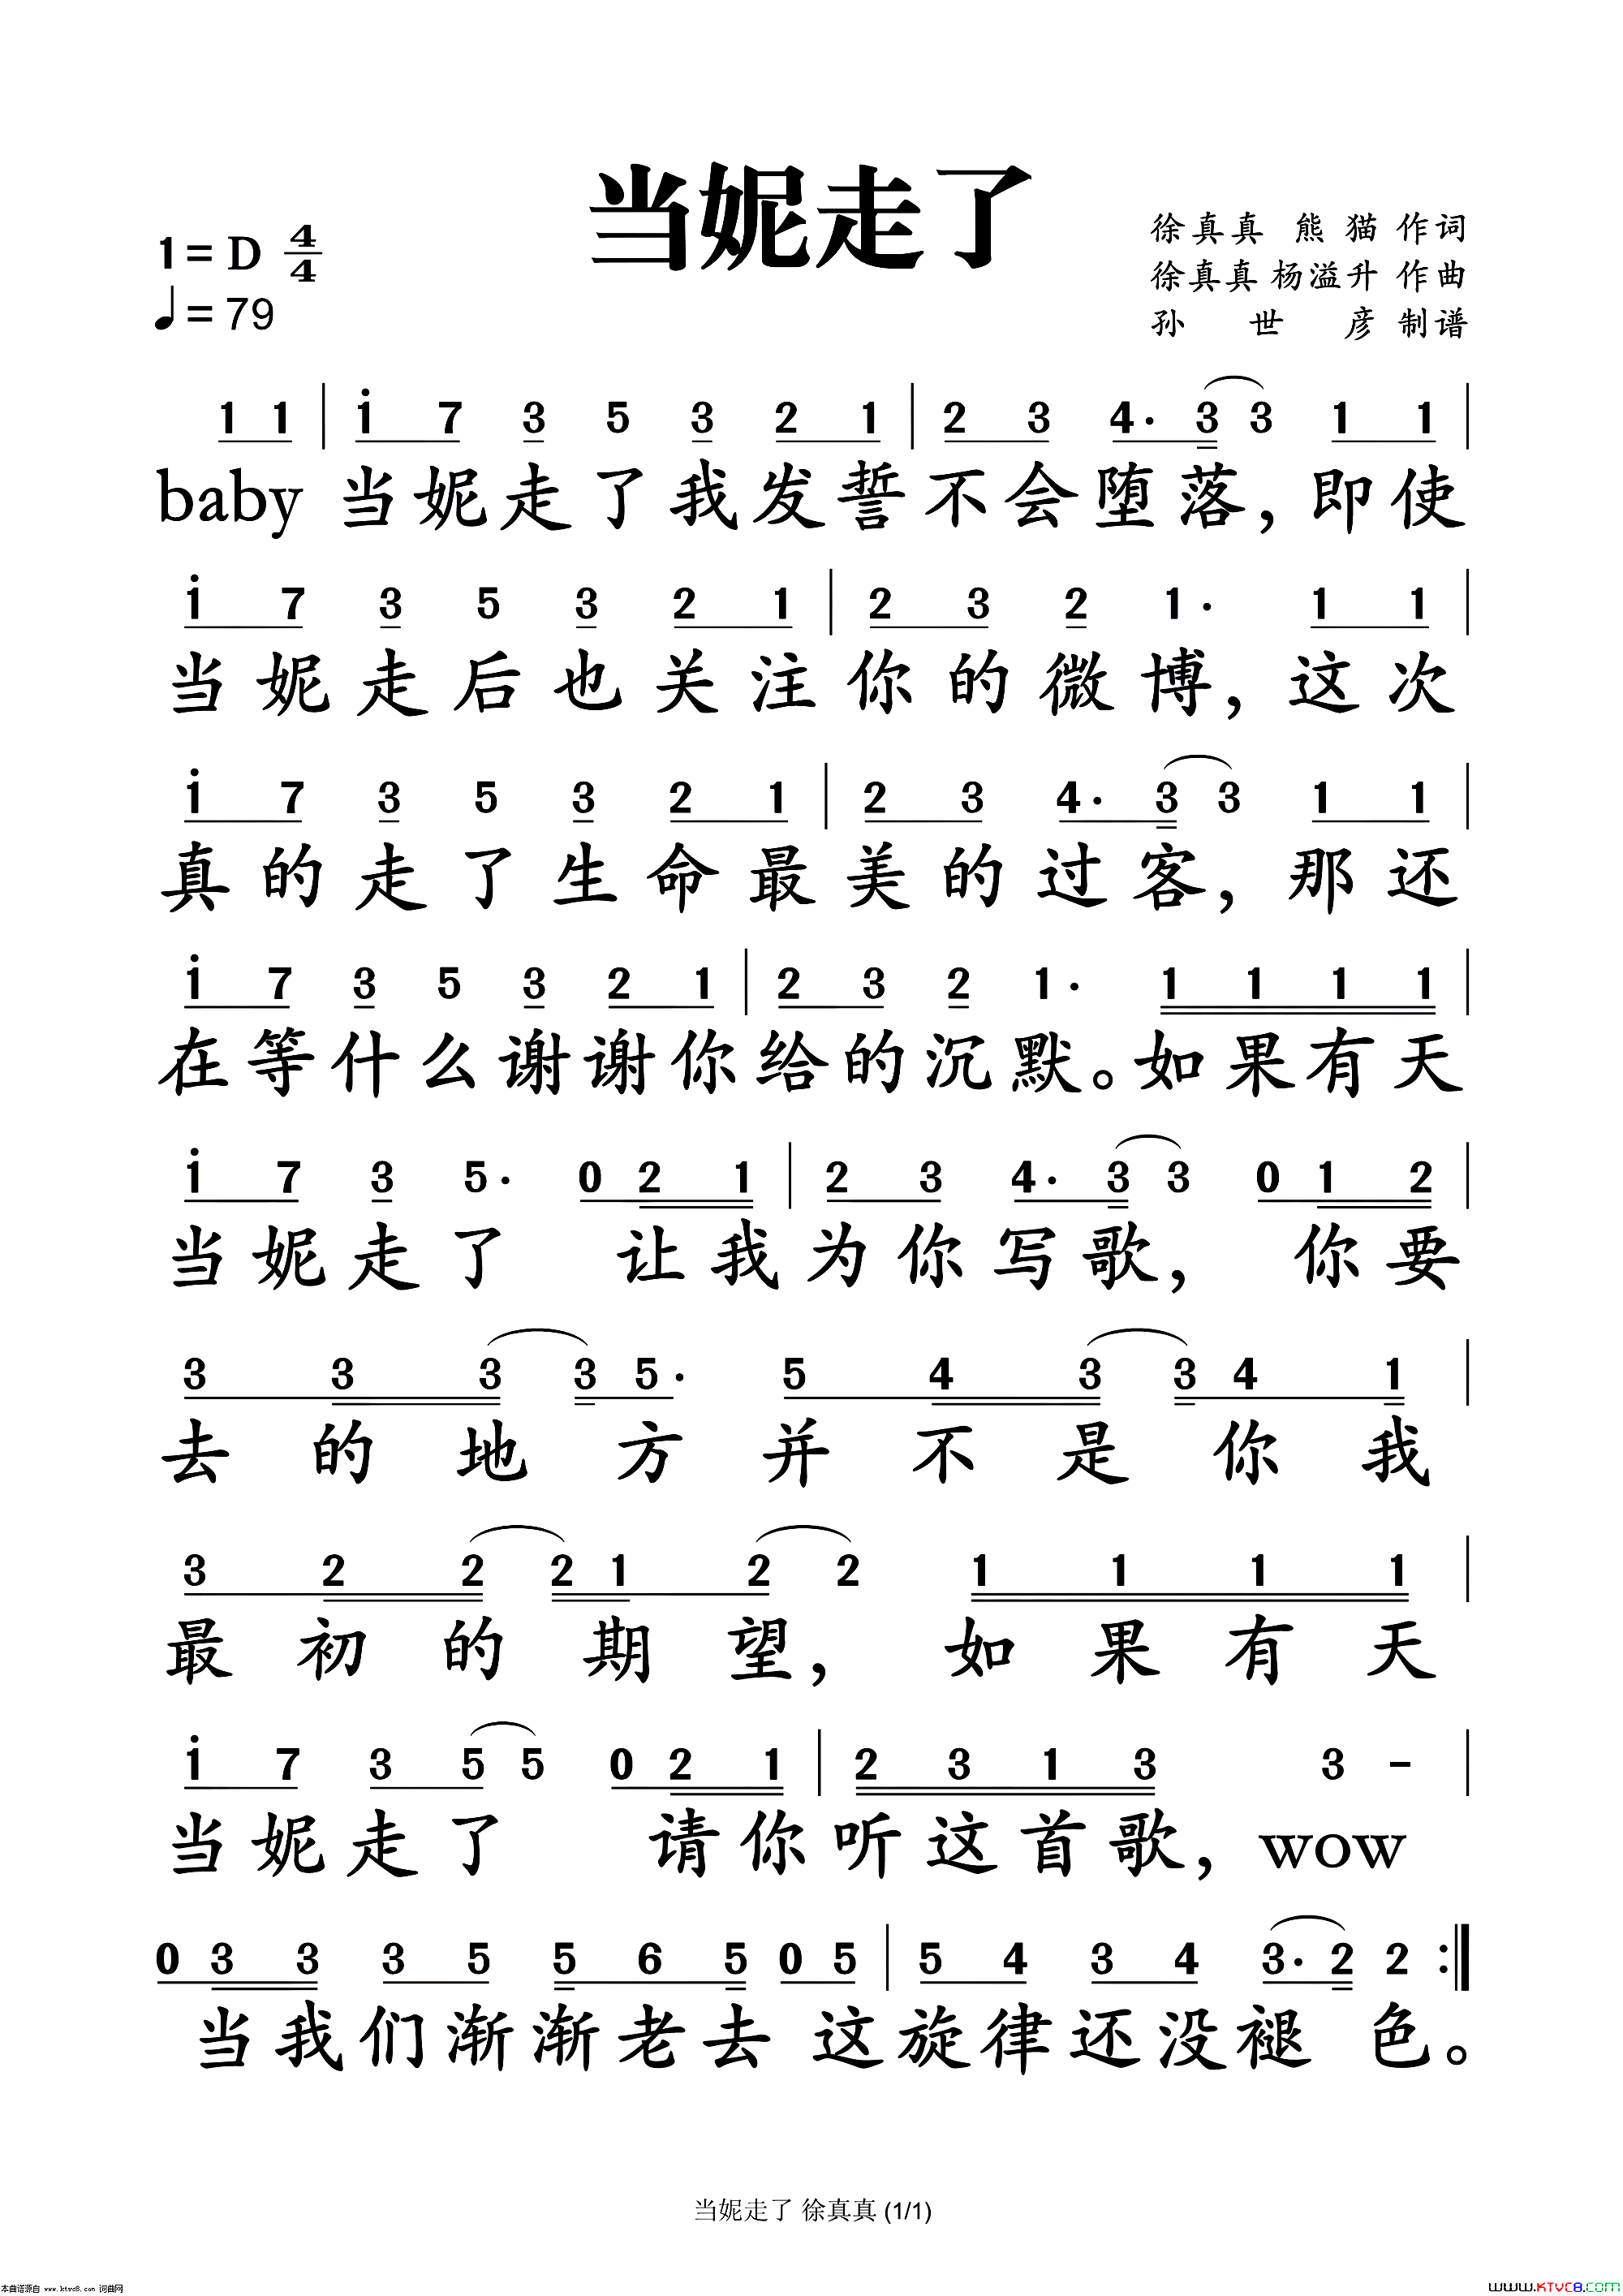 当妮走了
1=D 4/4
♩=79
徐真真 熊猫 作词
徐真真 杨溢升 作曲
孙世彦 制谱
1 1 | i 7 3 5 3 2 1 | 2 3 4· 3 3 1 1 |
baby 当妮走了我发誓不会堕落,即使
i 7 3 5 3 2 1 | 2 3 2 1· 1 1 |
当妮走后也关注你的微博,这次
i 7 3 5 3 2 1 | 2 3 4· 3 3 1 1 |
真的走了生命最美的过客,那还
i 7 3 5 3 2 1 | 2 3 2 1· 1 1 1 1 |
在等什么谢谢你给的沉默。如果有天
i 7 3 5· 0 2 1 | 2 3 4· 3 3 0 1 2 |
当妮走了 让我为你写歌, 你要
3 3 3 3 5· 5 4 3 3 4 1 |
去的地方并不是你我
3 2 2 2 1 2 2 1 1 1 1 |
最初的期望, 如果有天
i 7 3 5 5 0 2 1 | 2 3 1 3 3 - |
当妮走了 请你听这首歌, wow
0 3 3 3 5 5 6 5 0 5 | 5 4 3 4 3· 2 2 :‖
当我们渐渐老去 这旋律还没褪色。
当妮走了 徐真真 (1/1)
本曲谱源自 www.ktvc8.com 词曲网
WWW.KTVC8.COM